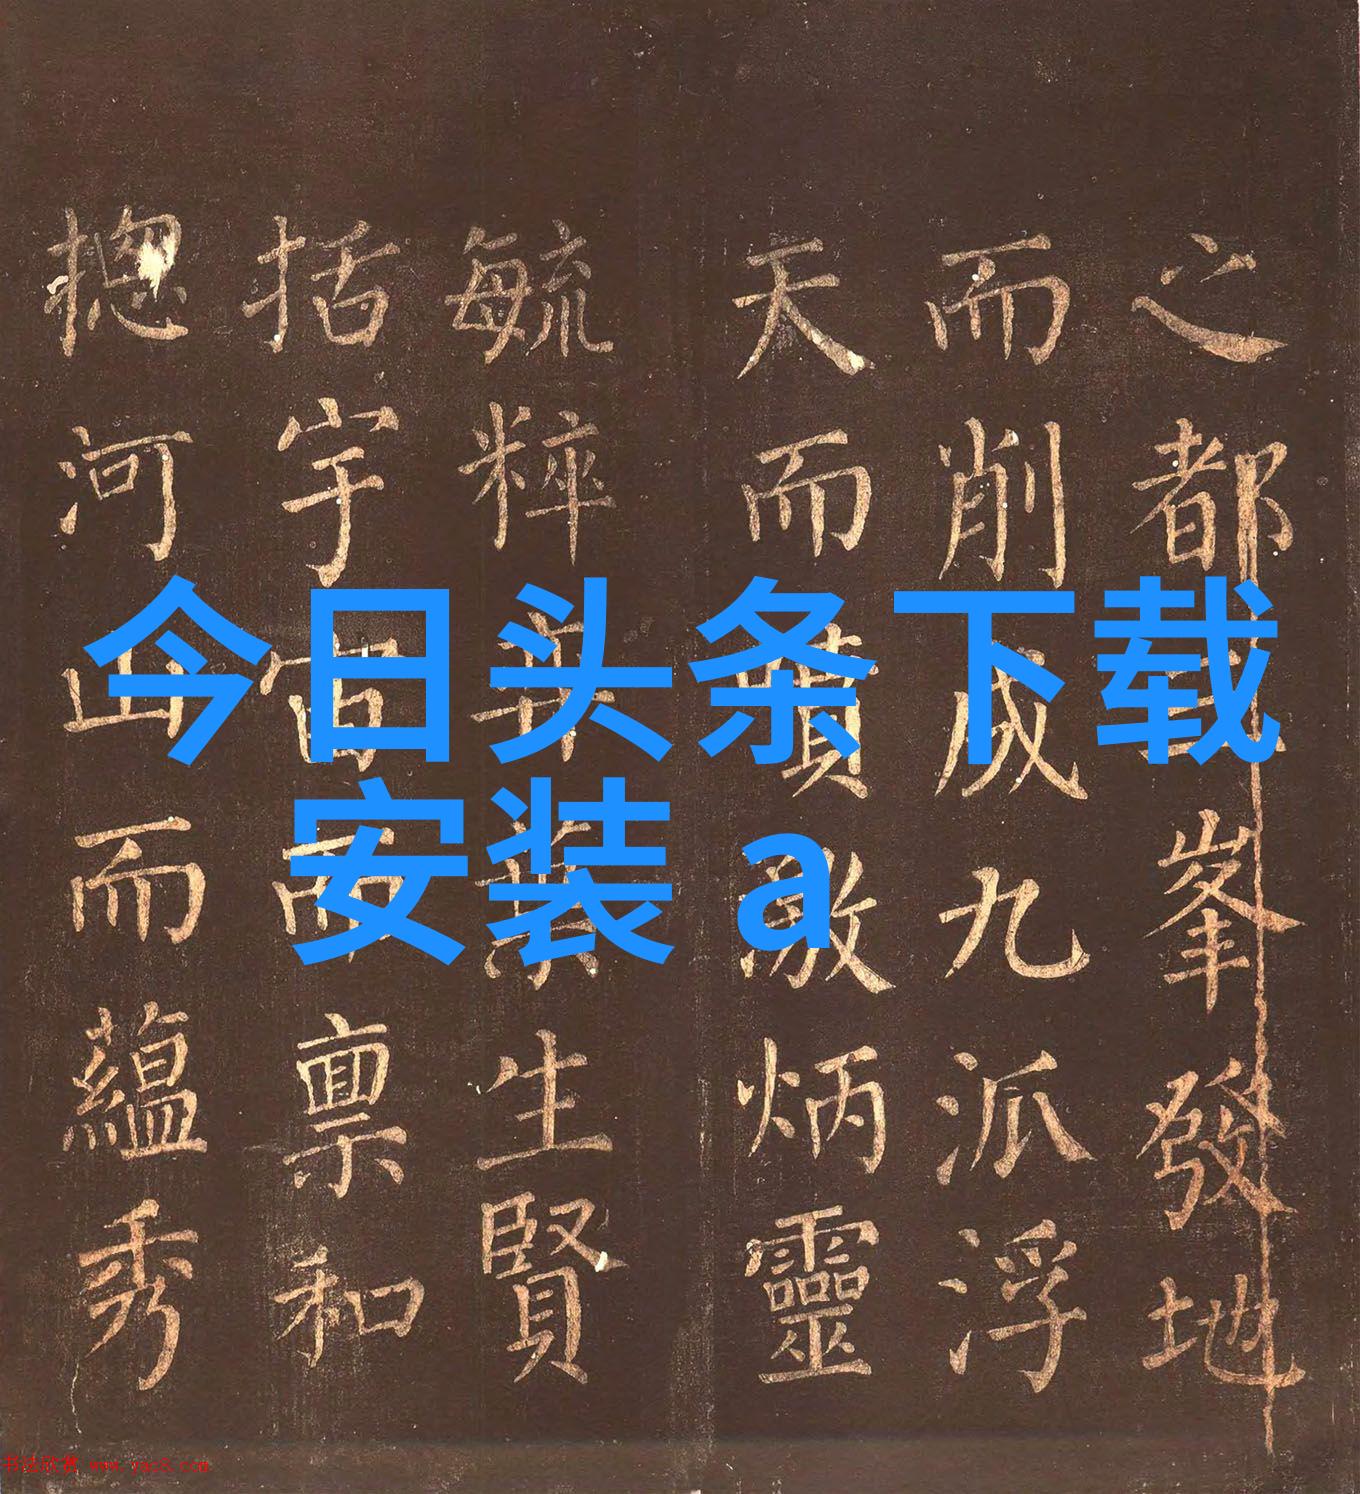 今日头条下载
安装 a
之都峯發地
而削成九派浮
天而激炳靈
毓粹生賢
括宇宙而稟和
揔河山而蘊秀
书法欣赏 www.yac8.com